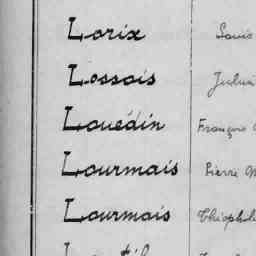 Lorix Louis
Lossois
Louédin François
Lourmais Pierre M
Lourmais Théophile